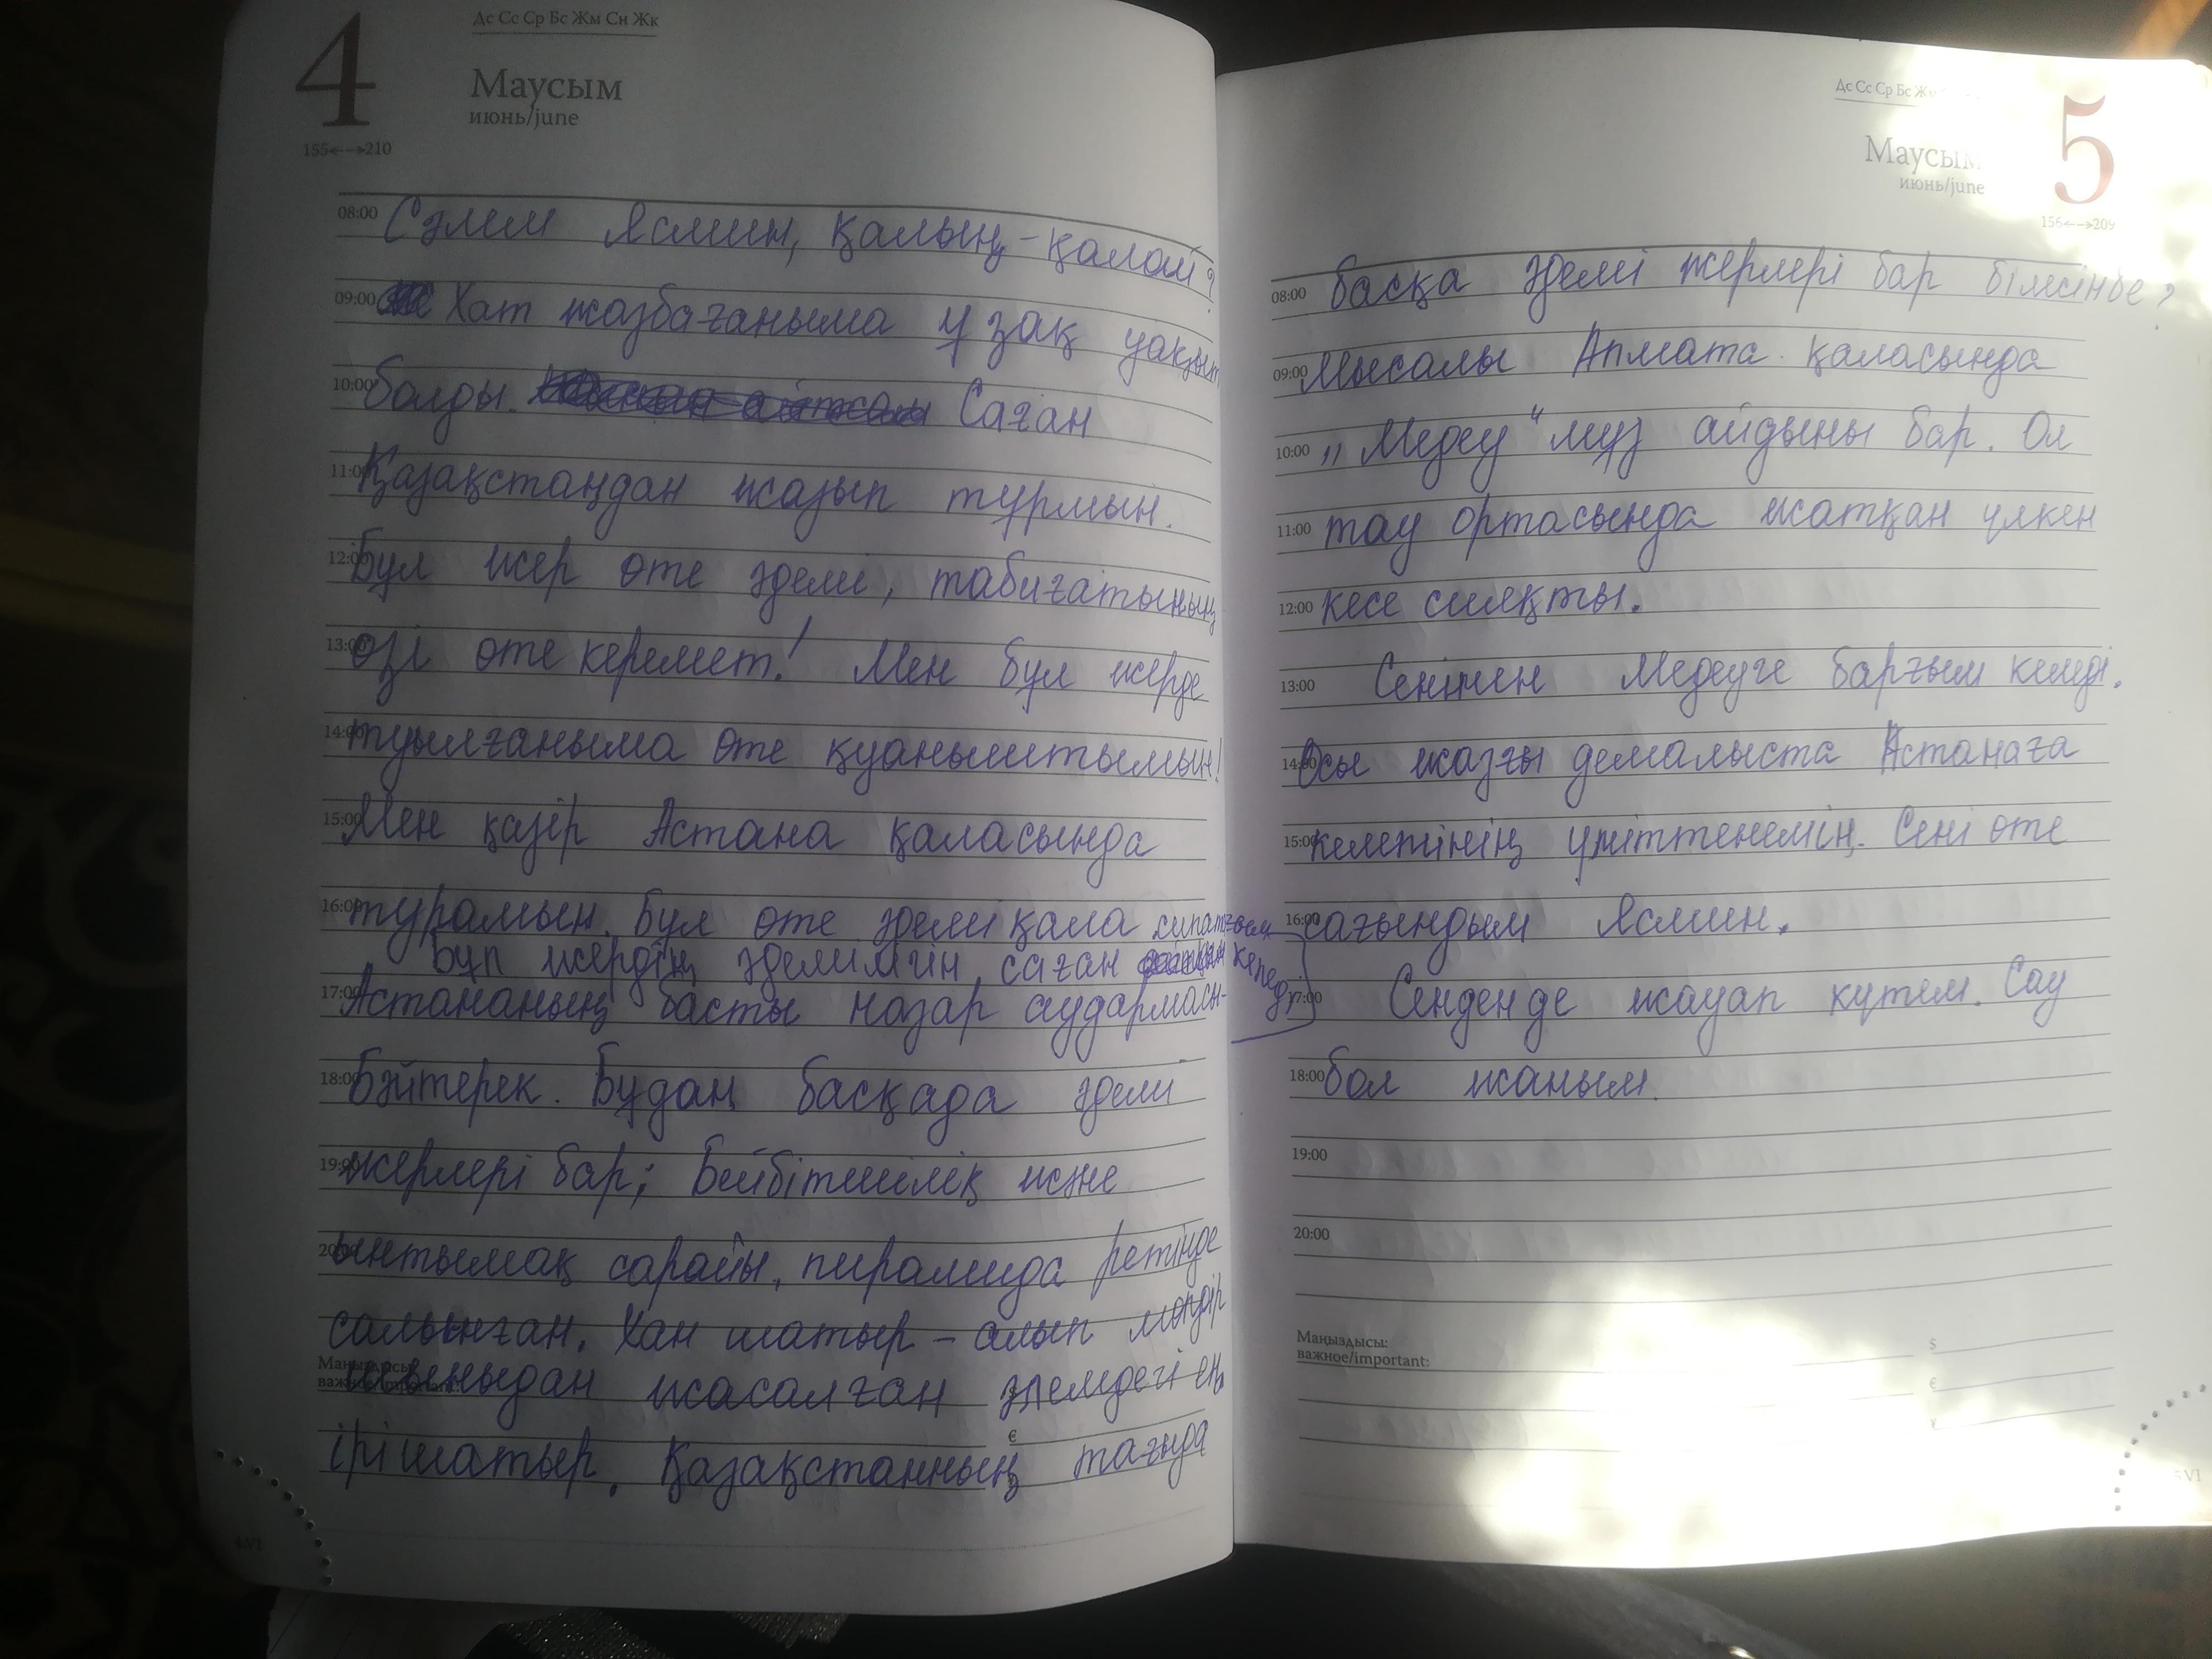 4
Дс Сс Ср Бс Жм Сн Жк
Маусым
июнь/june
155←→210
08:00 Сәлем Ясмин, қалың-қалай?
09:00 Хат жазбағаныма ұзақ уақыт
10:00 болды. Саған
11:00 Қазақстаңдан жазып тұрмын.
12:00 Бұл жер өте әдемі, табиғатының
13:00 өзі өте керемет! Мен бұл жерде
14:00 туылғаныма өте қуаныштымын!
15:00 Мен қазір Астана қаласында
16:00 тұрамын. Бұл өте әдемі қала
Бұл жердің әдемілігін саған сипатғым келеді
17:00 Астананың басты назар аудармасы-
18:00 Бәйтерек. Бұдан басқада әдемі
19:00 жерлері бар; Бейбітшілік және
20:00 ынтымақ сарайы, пирамида ретінде
салынған. Хан шатыр – алып мөлдір
Маңыздысы:
важное/important:
шыныдан жасалған әлемдегі ең
€
ірі шатыр. Қазақстанның тағыда
4 VI
Дс Сс Ср Бс Жм
5
Маусым
июнь/june
156←→209
08:00 басқа әдемі жерлері бар білесінбе?
09:00 Мысалы Алмата қаласында
10:00 „Медеу“ мұз айдыны бар. Ол
11:00 тау ортасында жатқан үлкен
12:00 кесе сияқты.
13:00 Сенімен Медеуге барғым келеді.
14:00 Осы жазғы демалыста Астанаға
15:00 келетінің үміттенемін. Сені өте
16:00 сағындым Ясмин.
17:00 Сенден де жауап күтем. Сау
18:00 бол жаным.
19:00
20:00
Маңыздысы:
важное/important:
$
€
¥
5 VI